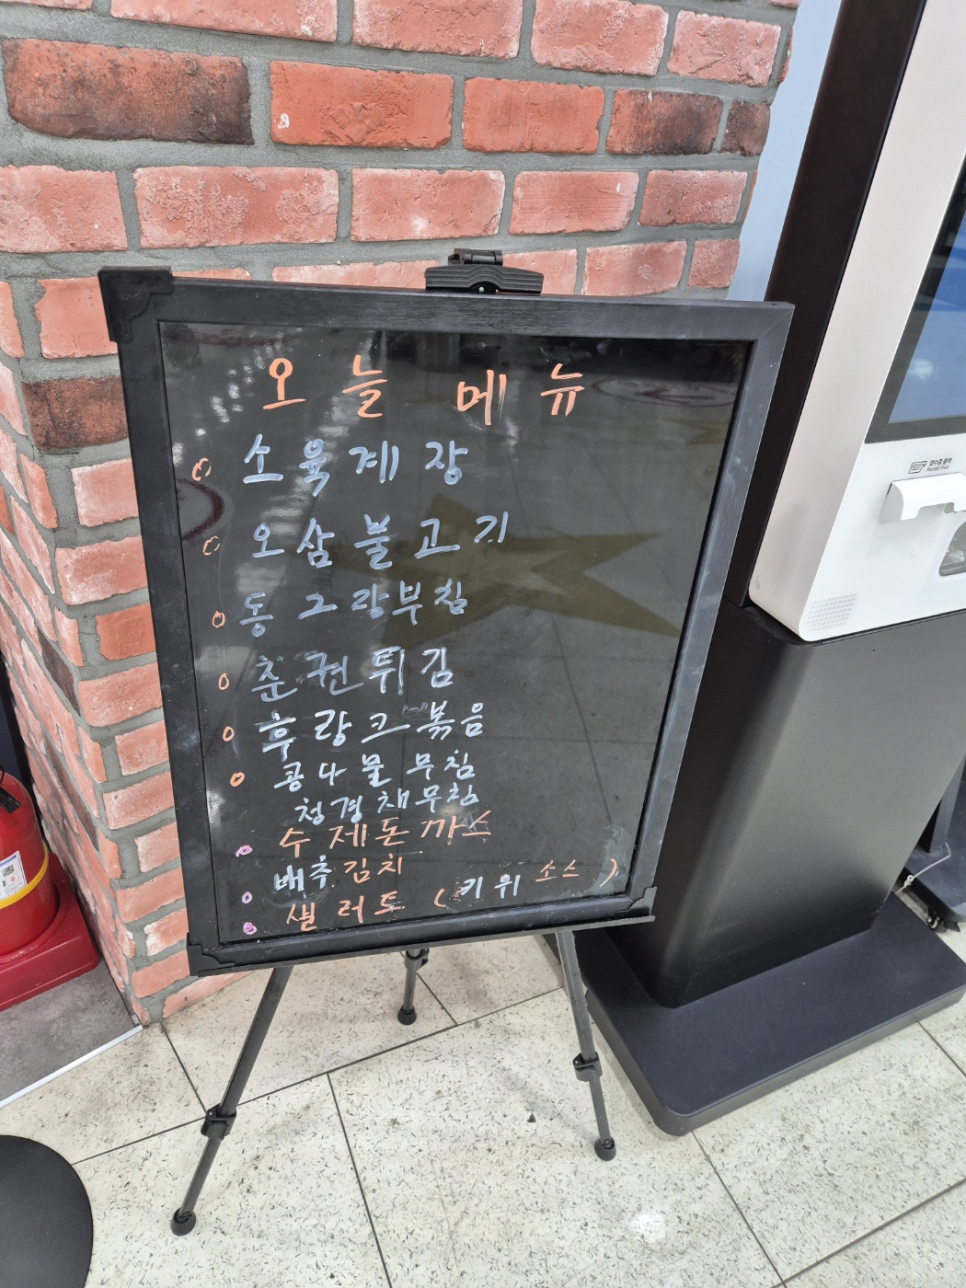 오늘 메뉴
소육계장
오삼불고기
동그랑부침
춘권튀김
후랑크볶음
콩나물무침
청경채무침
수제돈까스
배추김치
샐러드 (키위소스)
영수증 출력